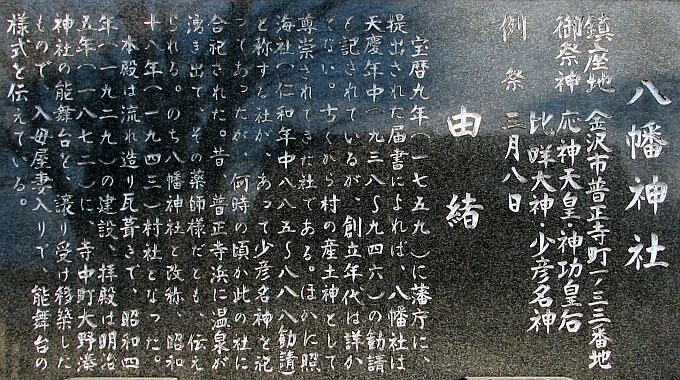 八幡神社
鎮座地　金沢市普正寺町一ノ三三番地
御祭神　応神天皇・神功皇后
比咩大神・少彦名神
例祭　三月八日
由緒
宝暦九年（一七五九）に藩庁に、
提出された届書によれば、八幡社は
天慶年中（九三八〜九四六）の勧請
と記されているが、創立年代は詳か
でない。古くから村の産土神として
尊崇されてきた社である。ほかに照
海社（仁和年中八八五〜八八八勧請
と称する社が、あって少彦名神を祀
ってあったが、何時の頃か此の社に
合祀された。昔　普正寺浜に温泉が
湧き出て、その薬師様だとも、伝え
られる。のち八幡神社と改称、昭和
十八年（一九四三）村社となった。
本殿は流れ造り瓦葺きで、昭和四
年（一九二九）の建設、拝殿は明治
五年（一八七二）に　寺中町大野湊
神社の能舞台を、譲り受け移築した
もので、入母屋妻入りで、能舞台の
様式を伝えている。